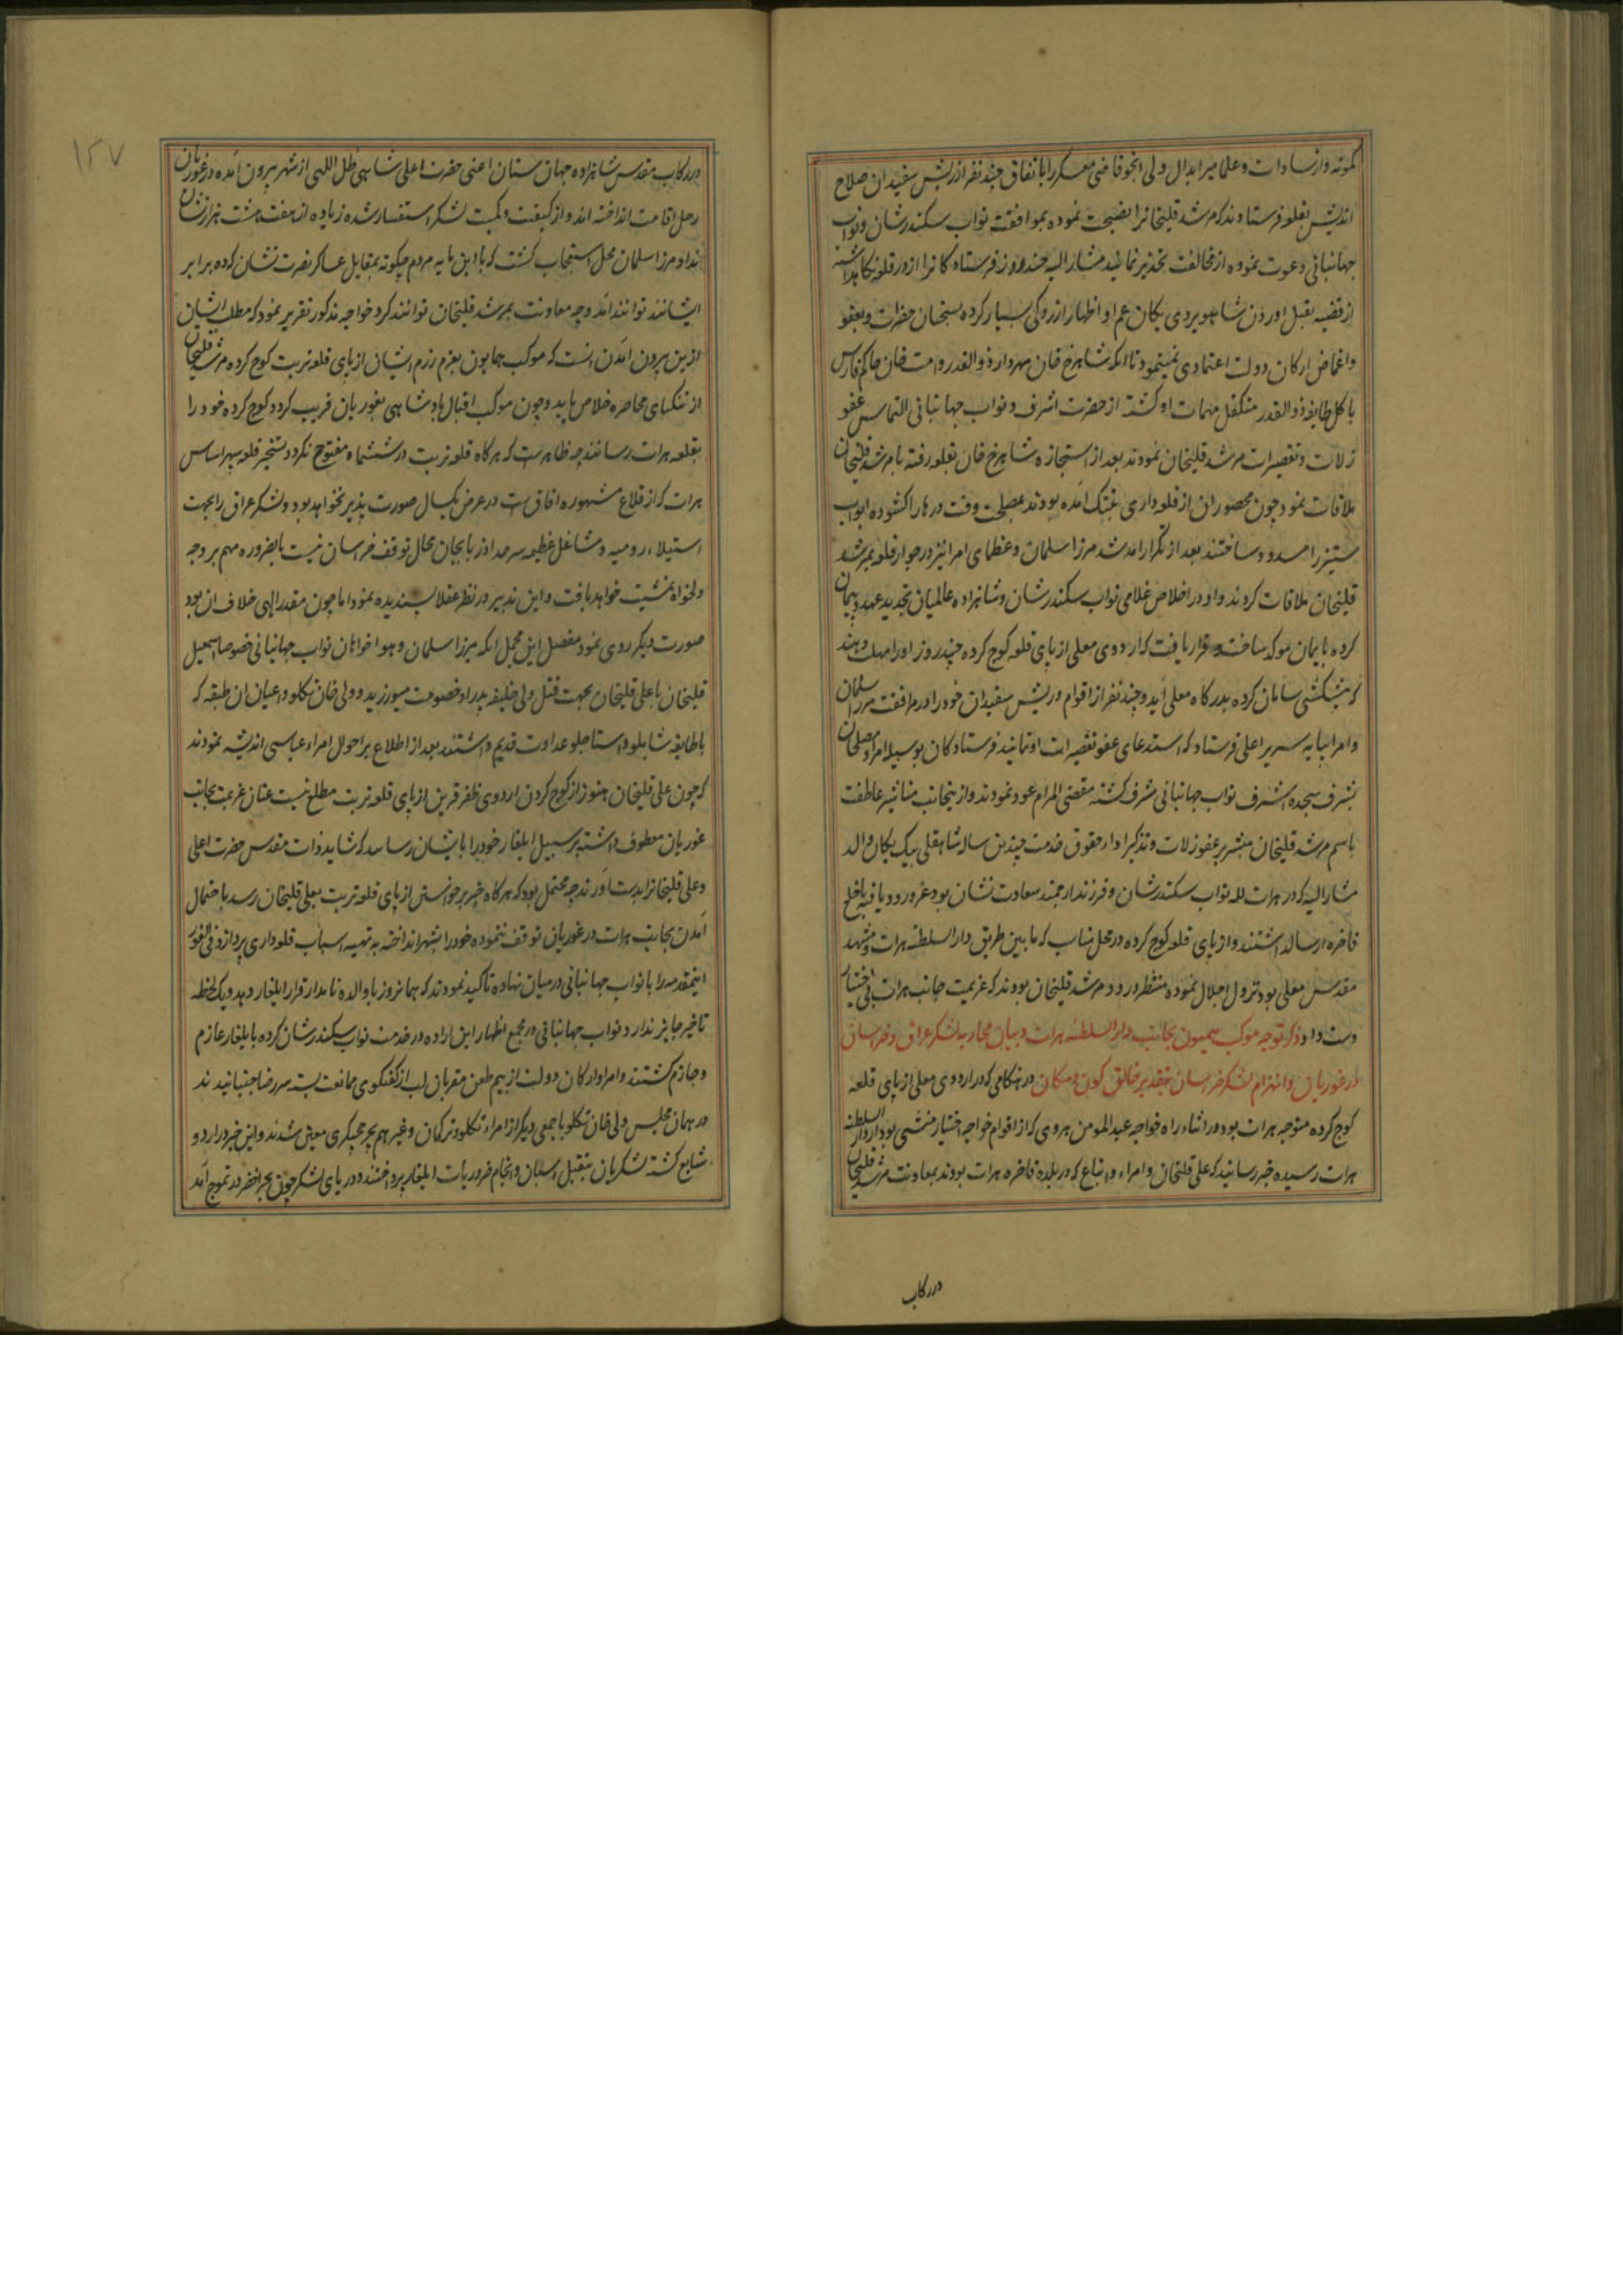 کمونه و از سادات و علما میر ابدال ولی انجو قاضی معسکر را باتفاق چند نفر از ریش سفیدان صلاح
اندیش بقلعه فرستادند که مرشد قلیخانرا نصیحت نموده بموافقت نواب سکندرشان و نواب
جهانبانی دعوت نموده از مخالفت تحذیر نمایند مشار الیه چند روز فرستادکانرا در قلعه نکاهداشته
از قضیه بقتل اوردن شاهویردی یکان عم او اظهار ازردکی بسیار کرده بسخنان حضرت و بعفو
و اغماض ارکان دولت اعتمادی نمینمود تا انکه شاهرخ خان مهردار ذوالقدر و امت خان حاکم فارس
با کل طایفه ذوالقدر متکفل مهمات او کشته از حضرت اشرف و نواب جهانبانی التماس عفو
زلات و تقصیرات مرشد قلیخان نمودند بعد از استجازه شاهرخ خان بقلعه رفته با مرشد قلیخان
ملاقات نمود چون محصوران از قلعه داری بتنک امده بودند بمصلحت وقت درها را کشوده ابواب
ستیز را مسدود ساختند بعد از تکرار امد شد مرزا سلمان و عظمای امرا نیز در جوار قلعه بمرشد
قلیخان ملاقات کردند و او در اخلاص غلامی نواب سکندرشان و شاهزاده عالمیان تجدید عهد و پیمان
کرده بایمان موکد ساخت و قرار یافت که اردوی معلی از پای قلعه کوچ کرده چند روز او را مهلت دهند
که پیشکشی سامان کرده بدرکاه معلی آید و چند نفر از اقوام و ریش سفیدان خود را در مرافقت مرزا سلمان
و امرا بپایه سریر اعلی فرستاد که استدعای عفو تقصیرات او نمایند فرستادکان بوسیله امرا و مصلحان
بشرف سجده اشرف نواب جهانبانی مشرف کشته مقضی المرام عود نمودند و از ینجانب مناشیر عاطفت
باسم مرشد قلیخان مبشر بر عفو زلات و تذکیر اداء حقوق خدمت چندین ساله شاهقلی بیک یکان والد
مشار الیه که در هرات لله نواب سکندرشان و فرزند ارجمند سعادت نشان بود عز ورود یافته با خلع
فاخره ارسال داشتند و از پای قلعه کوچ کرده در محل مناب که ما بین طریق دار السلطنه هرات و مشهد
مقدس معلی بود نزول اجلال نموده منتظر ورود مرشد قلیخان بودند که عزیمت جانب هرات بی اختیار
دست داد ذکر توجه موکب همیون بجانب دار السلطنه هرات و بیان محاربه لشکر عراق و خراسان
در غوریان و انهزام لشکر خراسان بتقدیر خالق کون و مکان در هنکامی که اردوی معلی از پای قلعه
کوچ کرده متوجه هرات بود در اثناء راه خواجه عبد المومن هروی که از اقوام خواجه اختیار منشی بود از دار السلطنه
هرات رسیده خبر رسانید که علی قلیخان و امراء و اتباع که در بلده فاخره هرات بودند بمعاونت مرشد قلیخان
در رکاب
۱۲۷
در رکاب مقدس شاهزاده جهان ستان اعنی حضرت اعلی شاهی ظل اللهی از شهر بیرون آمده در غوریان
رحل اقامت انداخته اند و از کیفیت و کمیت لشکر استفسار شده زیاده از هفت هشت هزار نشان
نداد مرزا سلمان محل استعجاب کشت که با این مایه مردم چکونه بمقابل عساکر نصرت نشان کرده برابر
ایشانند توانند آمد و چه معاونت بمرشد قلیخان توانند کرد خواجه مذکور تقریر نمود که مطلب ایشان
ازین بیرون امدن انست که موکب همایون بعزم رزم ایشان از پای قلعه تربت کوچ کرده مرشد قلیخان
از تنکنای محاصره خلاص یابد و چون موکب اقبال پادشاهی بغوریان قریب کردد کوچ کرده خود را
بقلعه هرات رسانند چه ظاهرست که هرکاه قلعه تربت در ششماه مفتوح نکردد تسخیر قلعه سپهر اساس
هرات که از قلاع مشهوره افاق ست در عرض یکسال صورت پذیر نخواهد بود و لشکر عراق را بجهت
استیلاء رومیه و مشاغل عظیمه سرحد اذربایجان مجال توقف خراسان نیست بالضروره مهم بر وجه
دلخواه تمشیت خواهد یافت و این تدبیر در نظر عقلا پسندیده نمود اما چون مقدر الهی خلاف ان بود
صورت دیکر روی نمود مفصل این مجمل انکه میرزا سلمان و هواخواهان نواب جهانبانی خصوصا اسمعیل
قلیخان با علی قلیخان بجهت قتل ولی خلیفه پدر او خصومت میورزید و ولی خان تکلو و اعیان ان طبقه که
با طایفه شاملو و استاجلو عداوت قدیم داشتند بعد از اطلاع بر احوال امراء عباسی اندیشه نمودند
که چون علی قلیخان هنوز از کوچ کردن اردوی ظفر قرین از پای قلعه تربت مطلع نیست عنان عزیمت بجانب
غوریان معطوف داشته بر سبیل ایلغار خود را بایشان رساند که شاید ذات مقدس حضرت اعلی
و علی قلیخانرا بدست آورند چه محتمل بود که هرکاه خبر برخواستن از پای قلعه تربت بعلی قلیخان رسد باحتمال
آمدن بجانب هرات در غوریان توقف ننموده خود را بشهر انداخته به تهیه اسباب قلعه داری پردازد فی الفور
اینمقدمه را با نواب جهانبانی در میان نهاده تاکید نمودند که همانروز با والده نامدار قرار ایلغار دهد و یک لحظه
تاخیر جایز ندارد نواب جهانبانی در مجمع اظهار این اراده در خدمت نواب سکندرشان کرده بایلغار عازم
و جازم کشتند و امرا و ارکان دولت از بیم طعن مقربان لب از کفتکوی ممانعت بسته سر رضا جنبانیدند
در همان مجلس ولی خان تکلو با جمعی دیکر از امراء تکلو و ترکمان و غیرهم بچرخچیکری معین شدند و این خبر در اردو
شایع کشته لشکریان بتقبل اسبان و انجام ضروریات ایلغار پرداختند و دریای لشکر چون بحر اخضر در تموج آمد